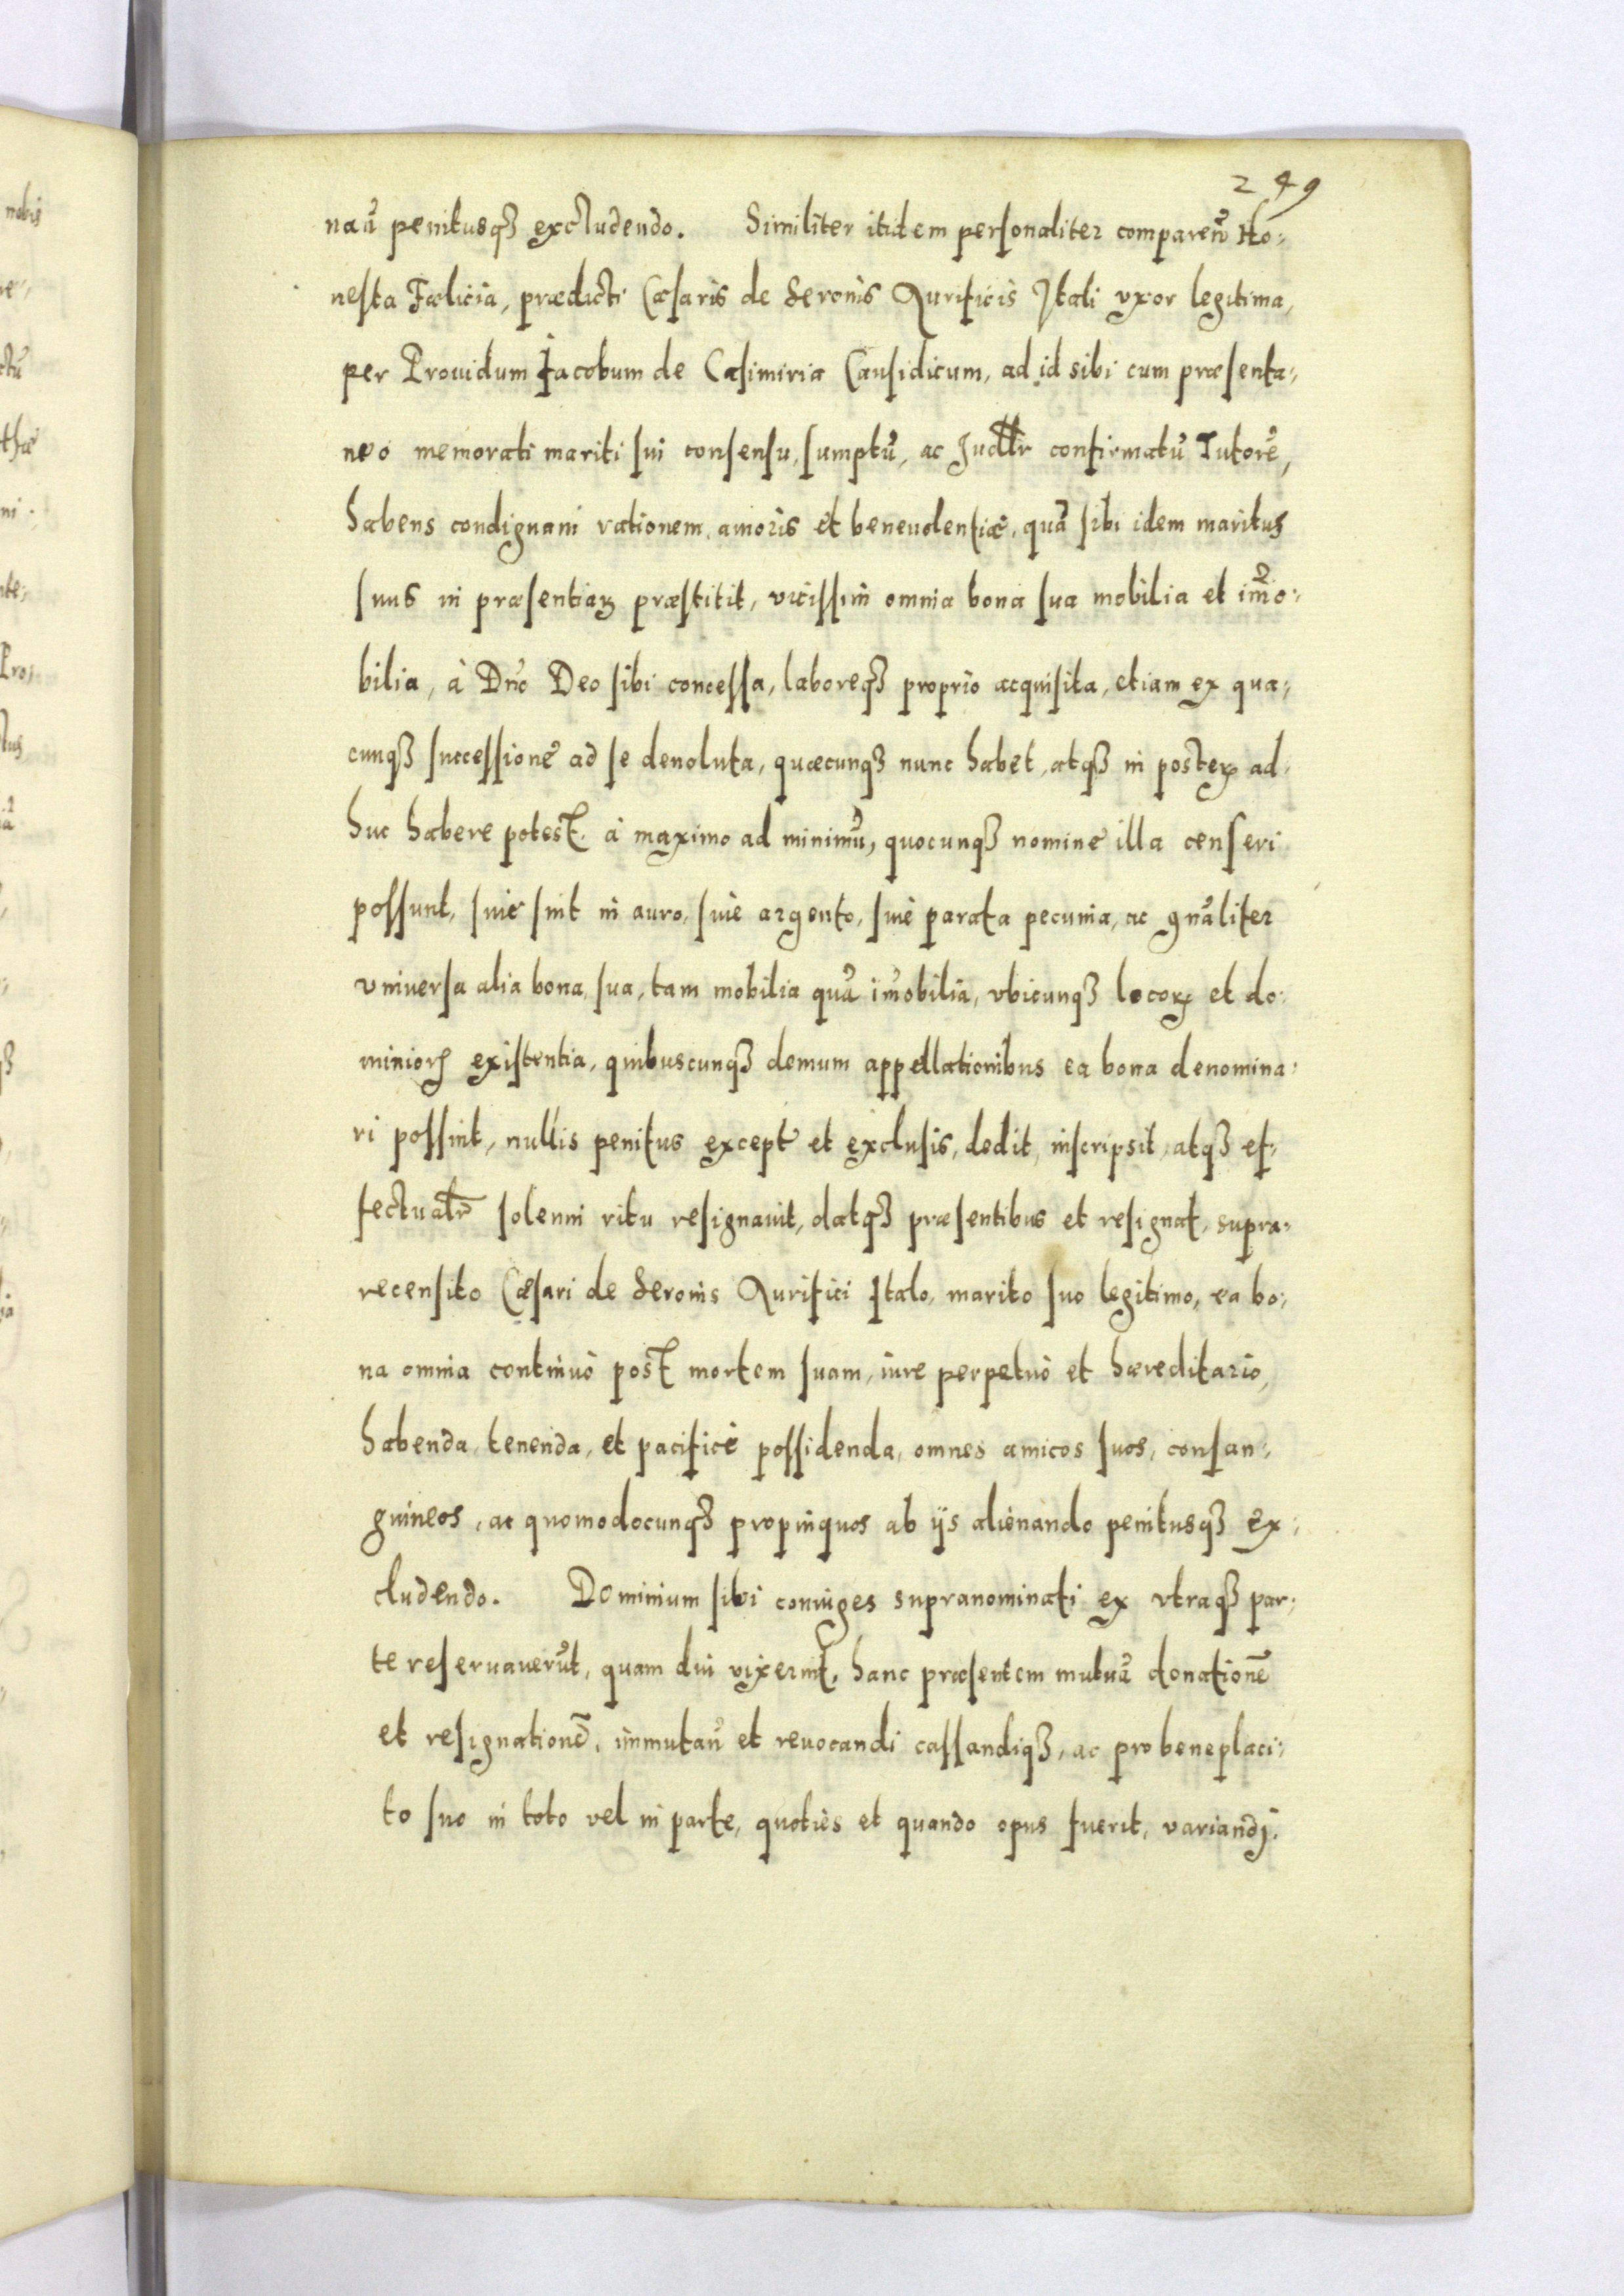 249
nañ penitusqȝ excludendo. Similiter itidem personaliter comparen̄ Ho:
nesta Fœlicia, prædicti Cæsaris de Seronis Aurificis Itali vxor legitima,
per Prouidum Iacobum de Casimiria Causidicum, ad id sibi cum præsenta:
neo memorati mariti sui consensu, sumptū, ac Judllr confirmatū Tutorē,
habens condignam rationem, amoris et beneuolentiæ, quā sibi idem maritus
suus in præsentiaꝝ præstitit, vicissim omnia bona sua mobilia et im̄o:
bilia, à Dn̄o Deo sibi concessa, laboreqȝ proprio acquisita, etiam ex qua:
cunqȝ successione ad se deuoluta, quæcunqȝ nunc habet, atqȝ in posteꝝ ad:
huc habere potest, à maximo ad minimū, quocunqȝ nomine illa censeri
possunt, siue sint in auro, siue argento, siue parata pecunia, ac gnāliter
vniuersa alia bona sua, tam mobilia quā im̄obilia, vbicunqȝ locoꝝ et do:
minioꝝ existentia, quibuscunqȝ demum appellationibus ea bona denomina:
ri possint, nullis penitus except̄ et exclusis, dedit, inscripsit, atqȝ ef:
fectualr̄ solenni ritu resignauit, datqȝ præsentibus et resignat, supra:
recensito Cæsari de Seronis Aurifici Italo, marito suo legitimo, ea bo:
na omnia continuò post mortem suam, iure perpetuò et hæreditario,
habenda, tenenda, et pacificè possidenda, omnes amicos suos, consan:
guineos, ac quomodocunqȝ propinquos ab ijs alienando penitusqȝ ex:
cludendo. Dominium sibi coniuges supranominati ex vtraqȝ par:
te reseruauerūt, quam diu vixerint, hanc præsentem mutuā donationē
et resignationē, immutañ et reuocandi cassandiqȝ, ac pro beneplaci:
to suo in toto vel in parte, quoties et quando opus fuerit, variandi.